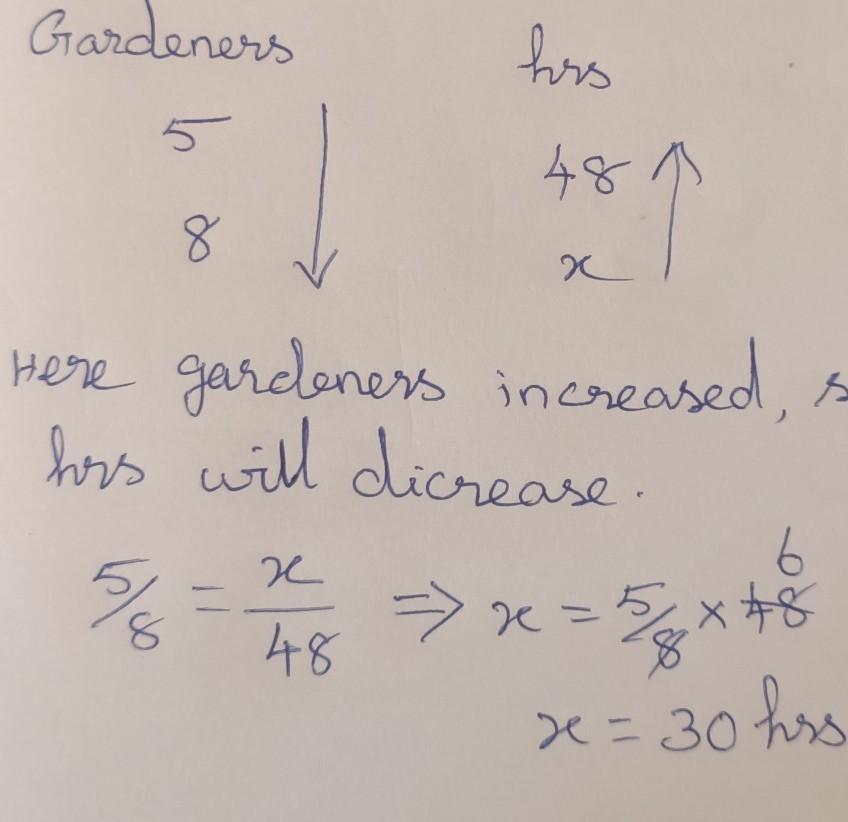 Gardeners hrs
5 48
8 x
Here gardeners increased, s
hrs will dicrease.
5/8 = x/48 ⇒ x = 5/8 × 48 6
x = 30 hrs